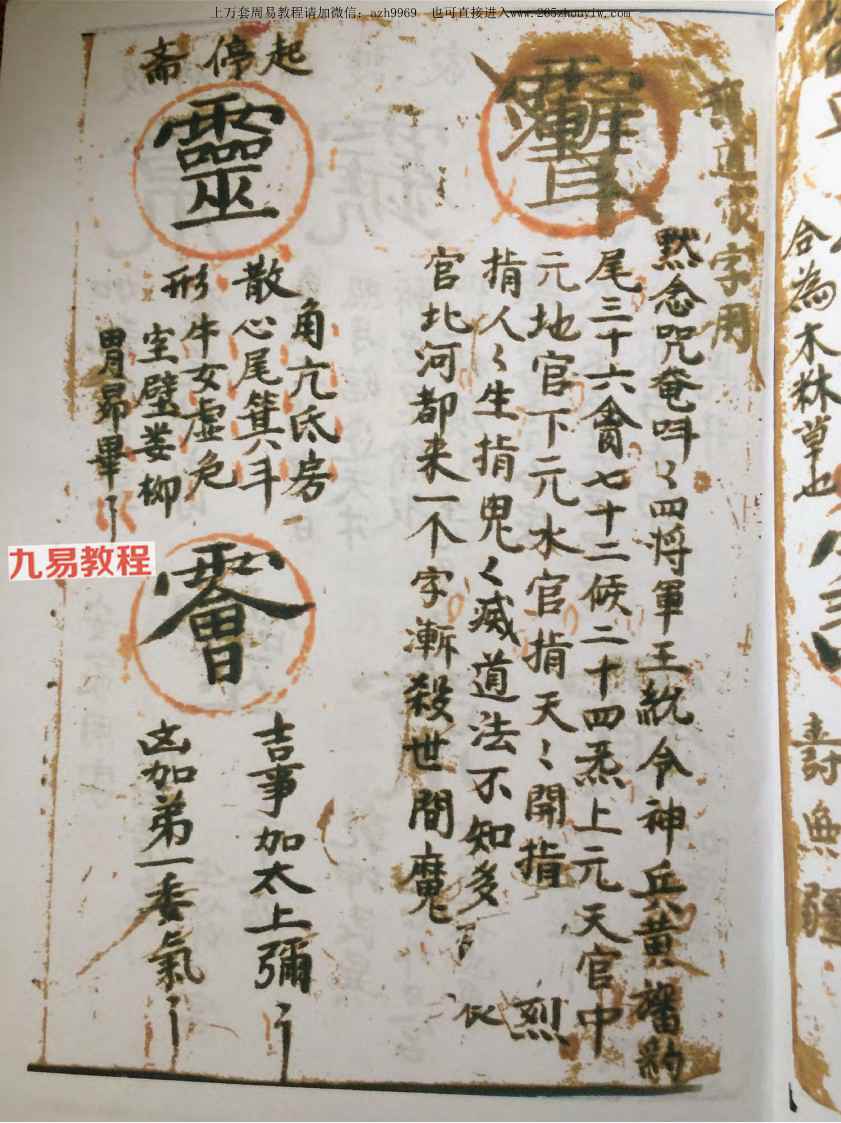 上万套周易教程请加微信：azh9969　也可直接进入www.265zhouyiw.com
道家字用
默念咒奄吽〻四将軍王統令神兵黄旛豹
尾三十六禽七十二候二十四炁上元天官中
元地官下元水官指天〻開指
烈
指人〻生指鬼〻滅道法不知多
官北河都来一个字漸殺世間魔
起停斋
靈
角亢氐房
散心尾箕斗
形牛女虚危
室壁娄柳
胃昴畢
吉事加太上彌
凶加弟一委氣
九易教程
合為木秝草也
壽無疆